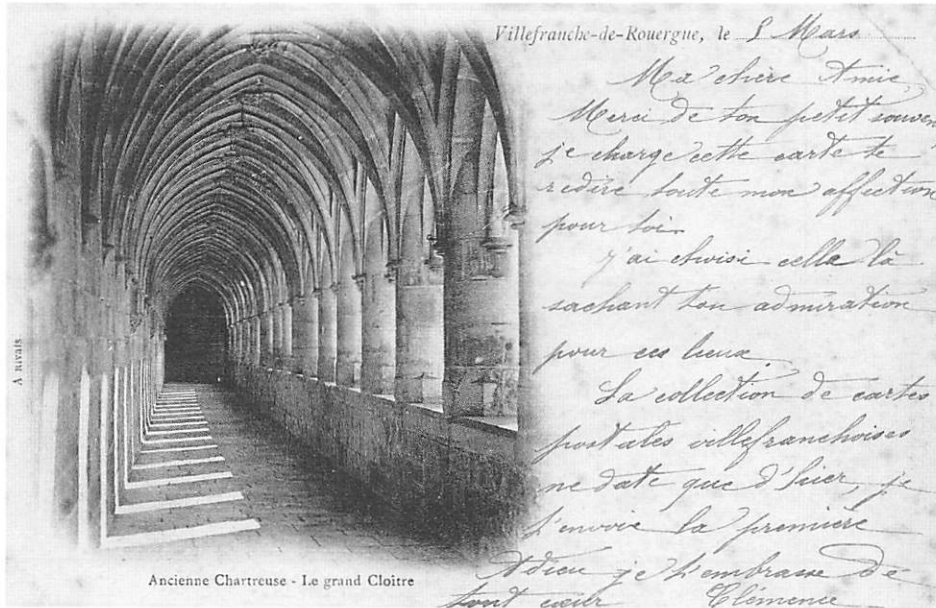 Villefranche-de-Rouergue, le 8 Mars
Ma chère Amie,
Merci de ton petit souvenir
je charge cette carte te
redire toute mon affection
pour toi.
J'ai choisi celle là
sachant ton admiration
pour ces lieux
La collection de cartes
postales villefranchoises
ne date que d'hier, je
t'envoie la première
Adieu je t'embrasse de
tout cœur Clémence
A Rivais
Ancienne Chartreuse - Le grand Cloître